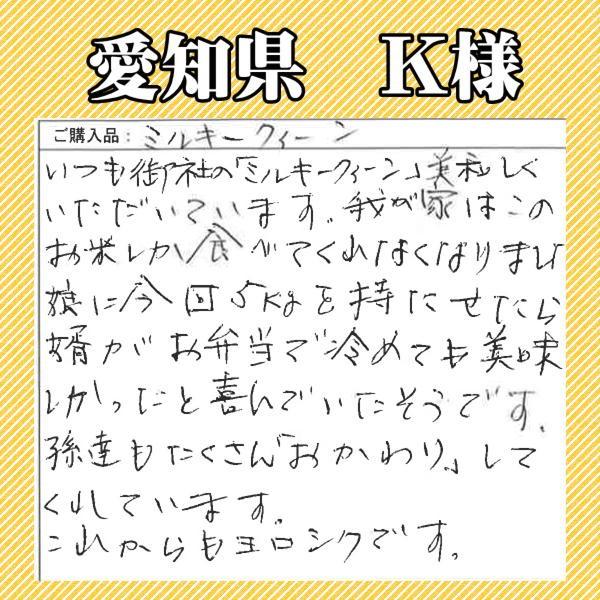 愛知県 K様
ご購入品：ミルキークィーン
いつも御社の「ミルキークィーン」美和しく
いただいています。我が家はこの
お米しか食べてくれなくなりまし
娘に今回5Kgを持たせたら
婿がお弁当で冷めても美味
しかったと喜んでいたそうです。
孫達もたくさん「おかわり」して
くれています。
これからもヨロシクです。